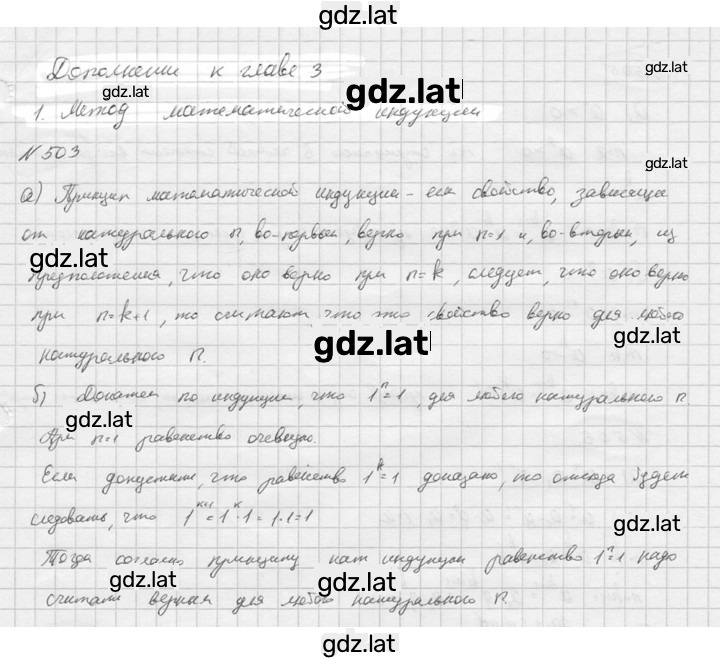 gdz.lat
Дополнении к главе 3
gdz.lat
gdz.lat
gdz.lat
1. Метод математической индукции
N 503
gdz.lat
а) Принцип математической индукции - если свойство, зависящее
от натурального n, во-первых, верно при n=1 и, во-вторых, из
gdz.lat
предположения, что оно верно при n=k, следует, что оно верно
при n=k+1, то считают что это свойство верно для любого
gdz.lat
gdz.lat
натурального n.
б) Докажем по индукции, что 1ⁿ=1, для любого натурального n.
gdz.lat
При n=1 равенство очевидно.
Если допустить, что равенство 1ᵏ=1 доказано, то отсюда будет
следовать, что 1ᵏ⁺¹=1ᵏ·1=1·1=1
gdz.lat
Тогда согласно принципу мат индукции равенство 1ⁿ=1 надо
gdz.lat
gdz.lat
считать верным для любого натурального n.
gdz.lat